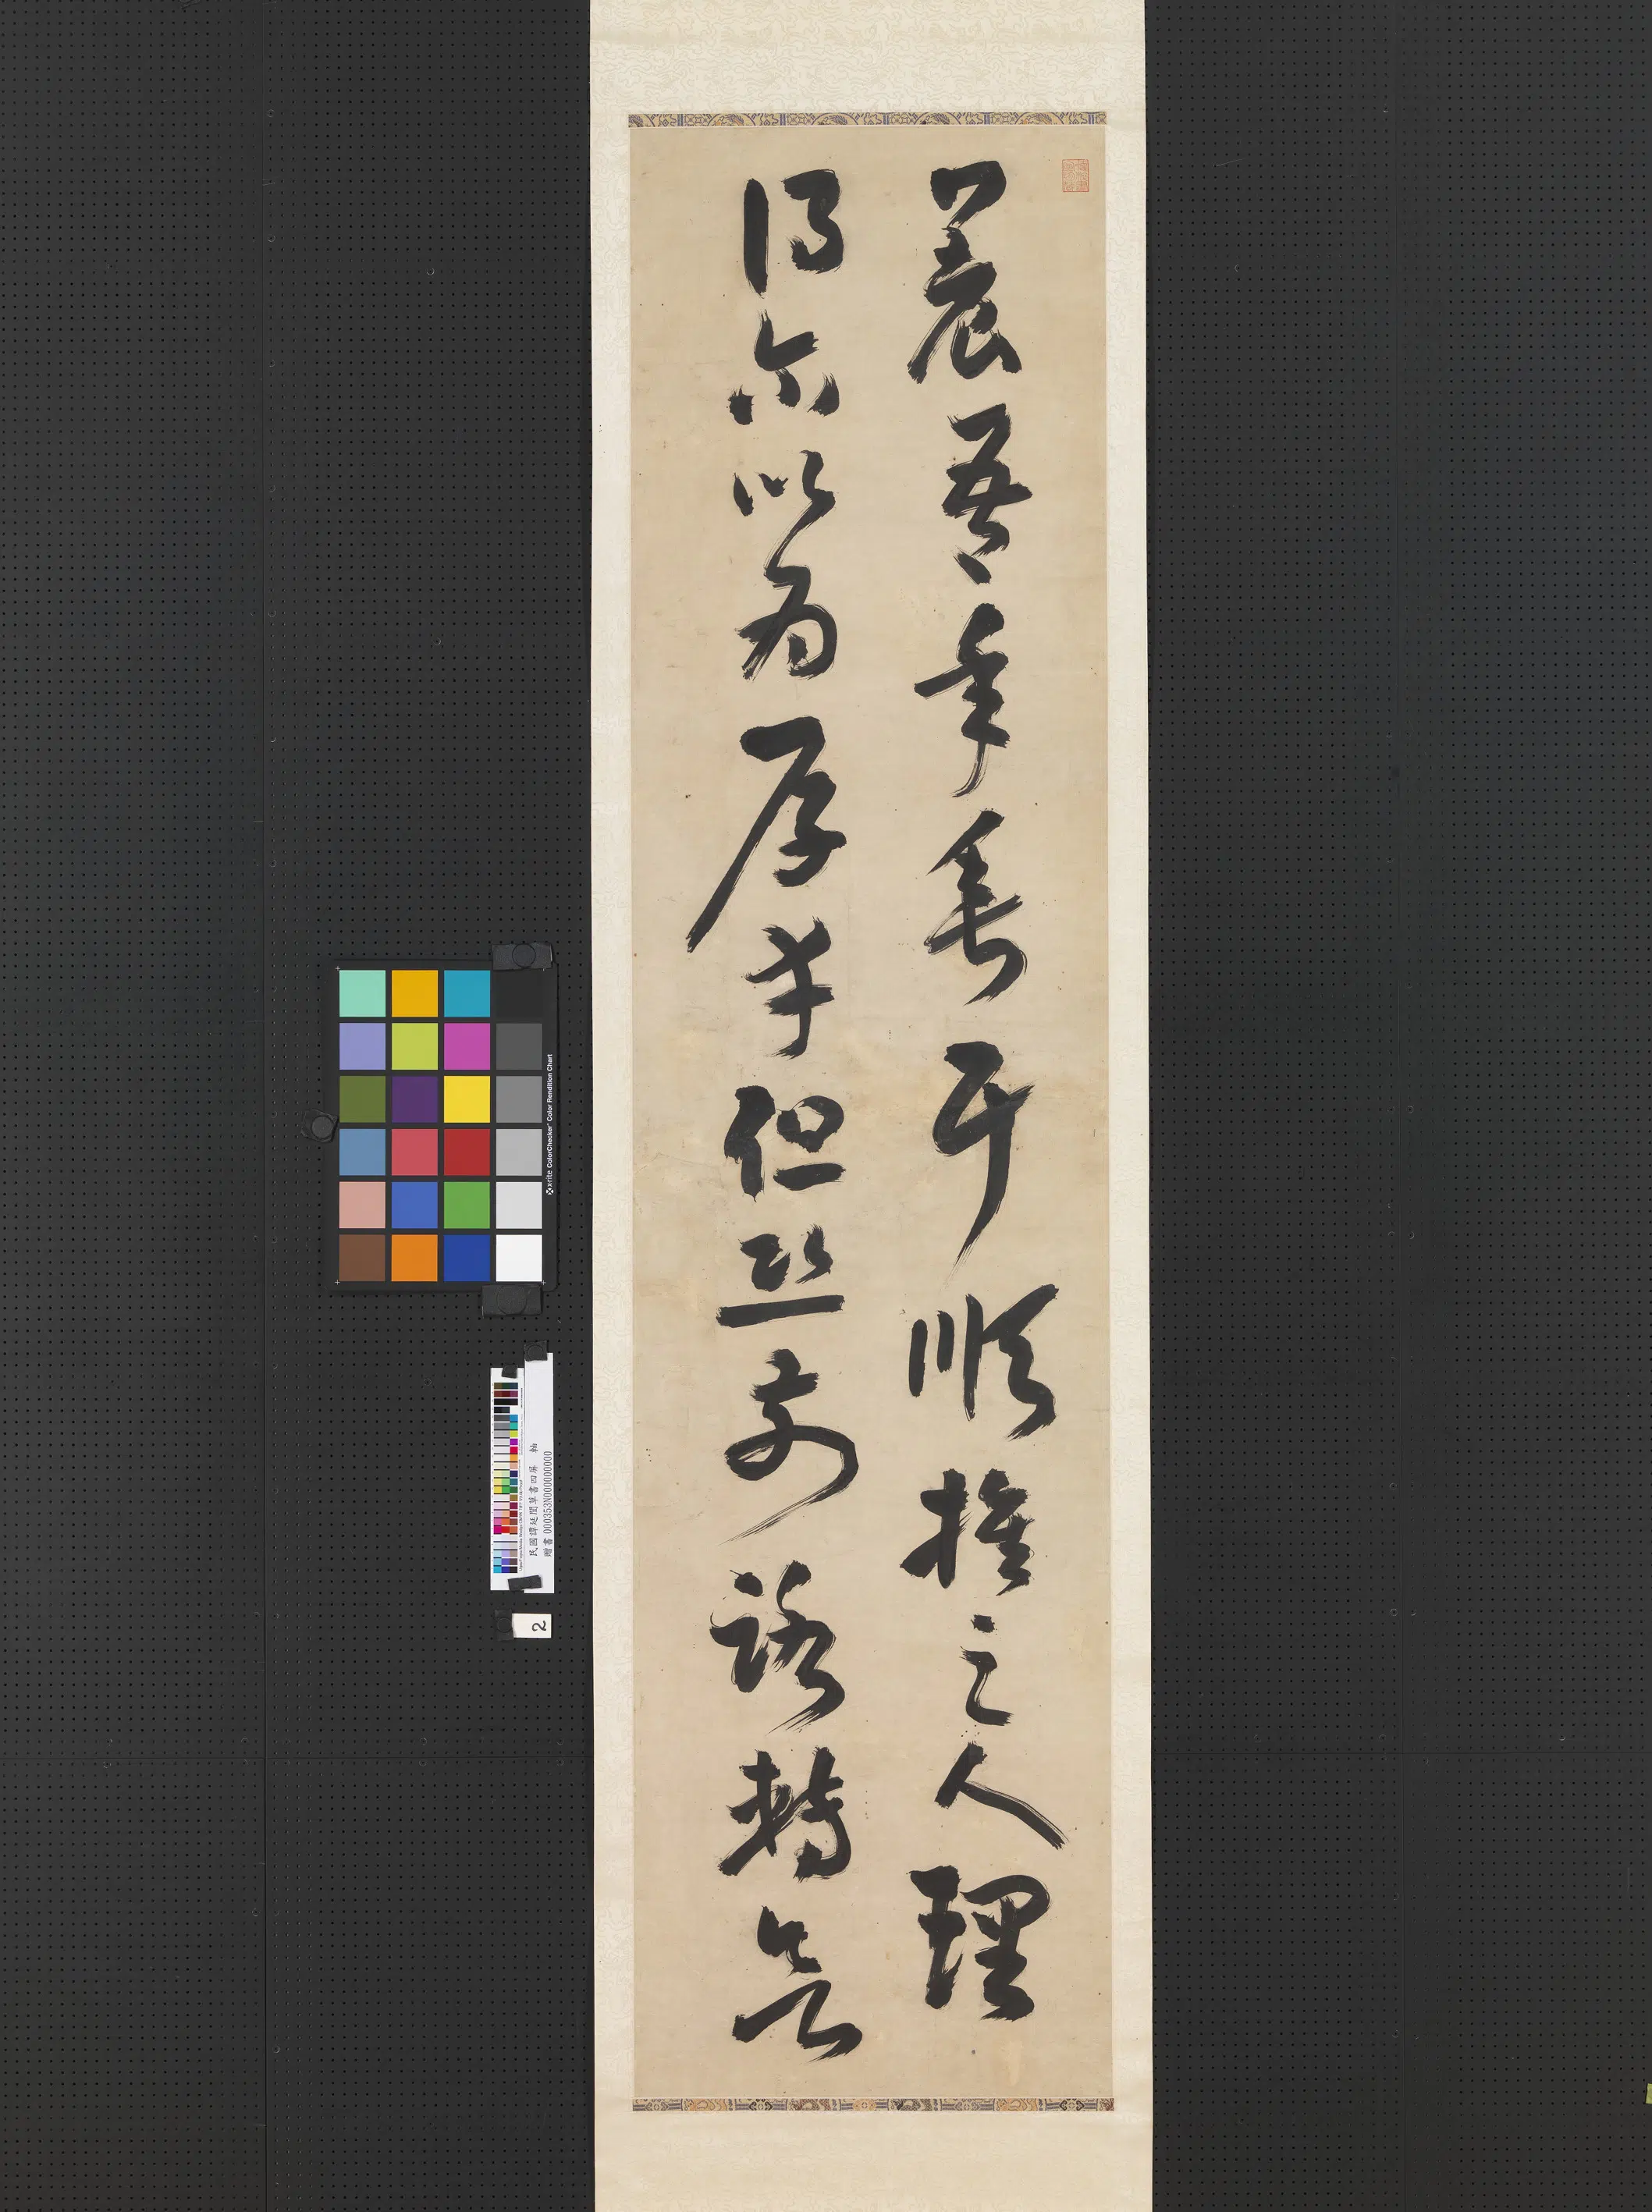 養吾年垂耳順推之人理
得尔以為厚幸但恐前路轉欲
x-rite ColorChecker Color Rendition Chart
民國譚延闓草書四屏 軸
贈書 000353N000000000
2